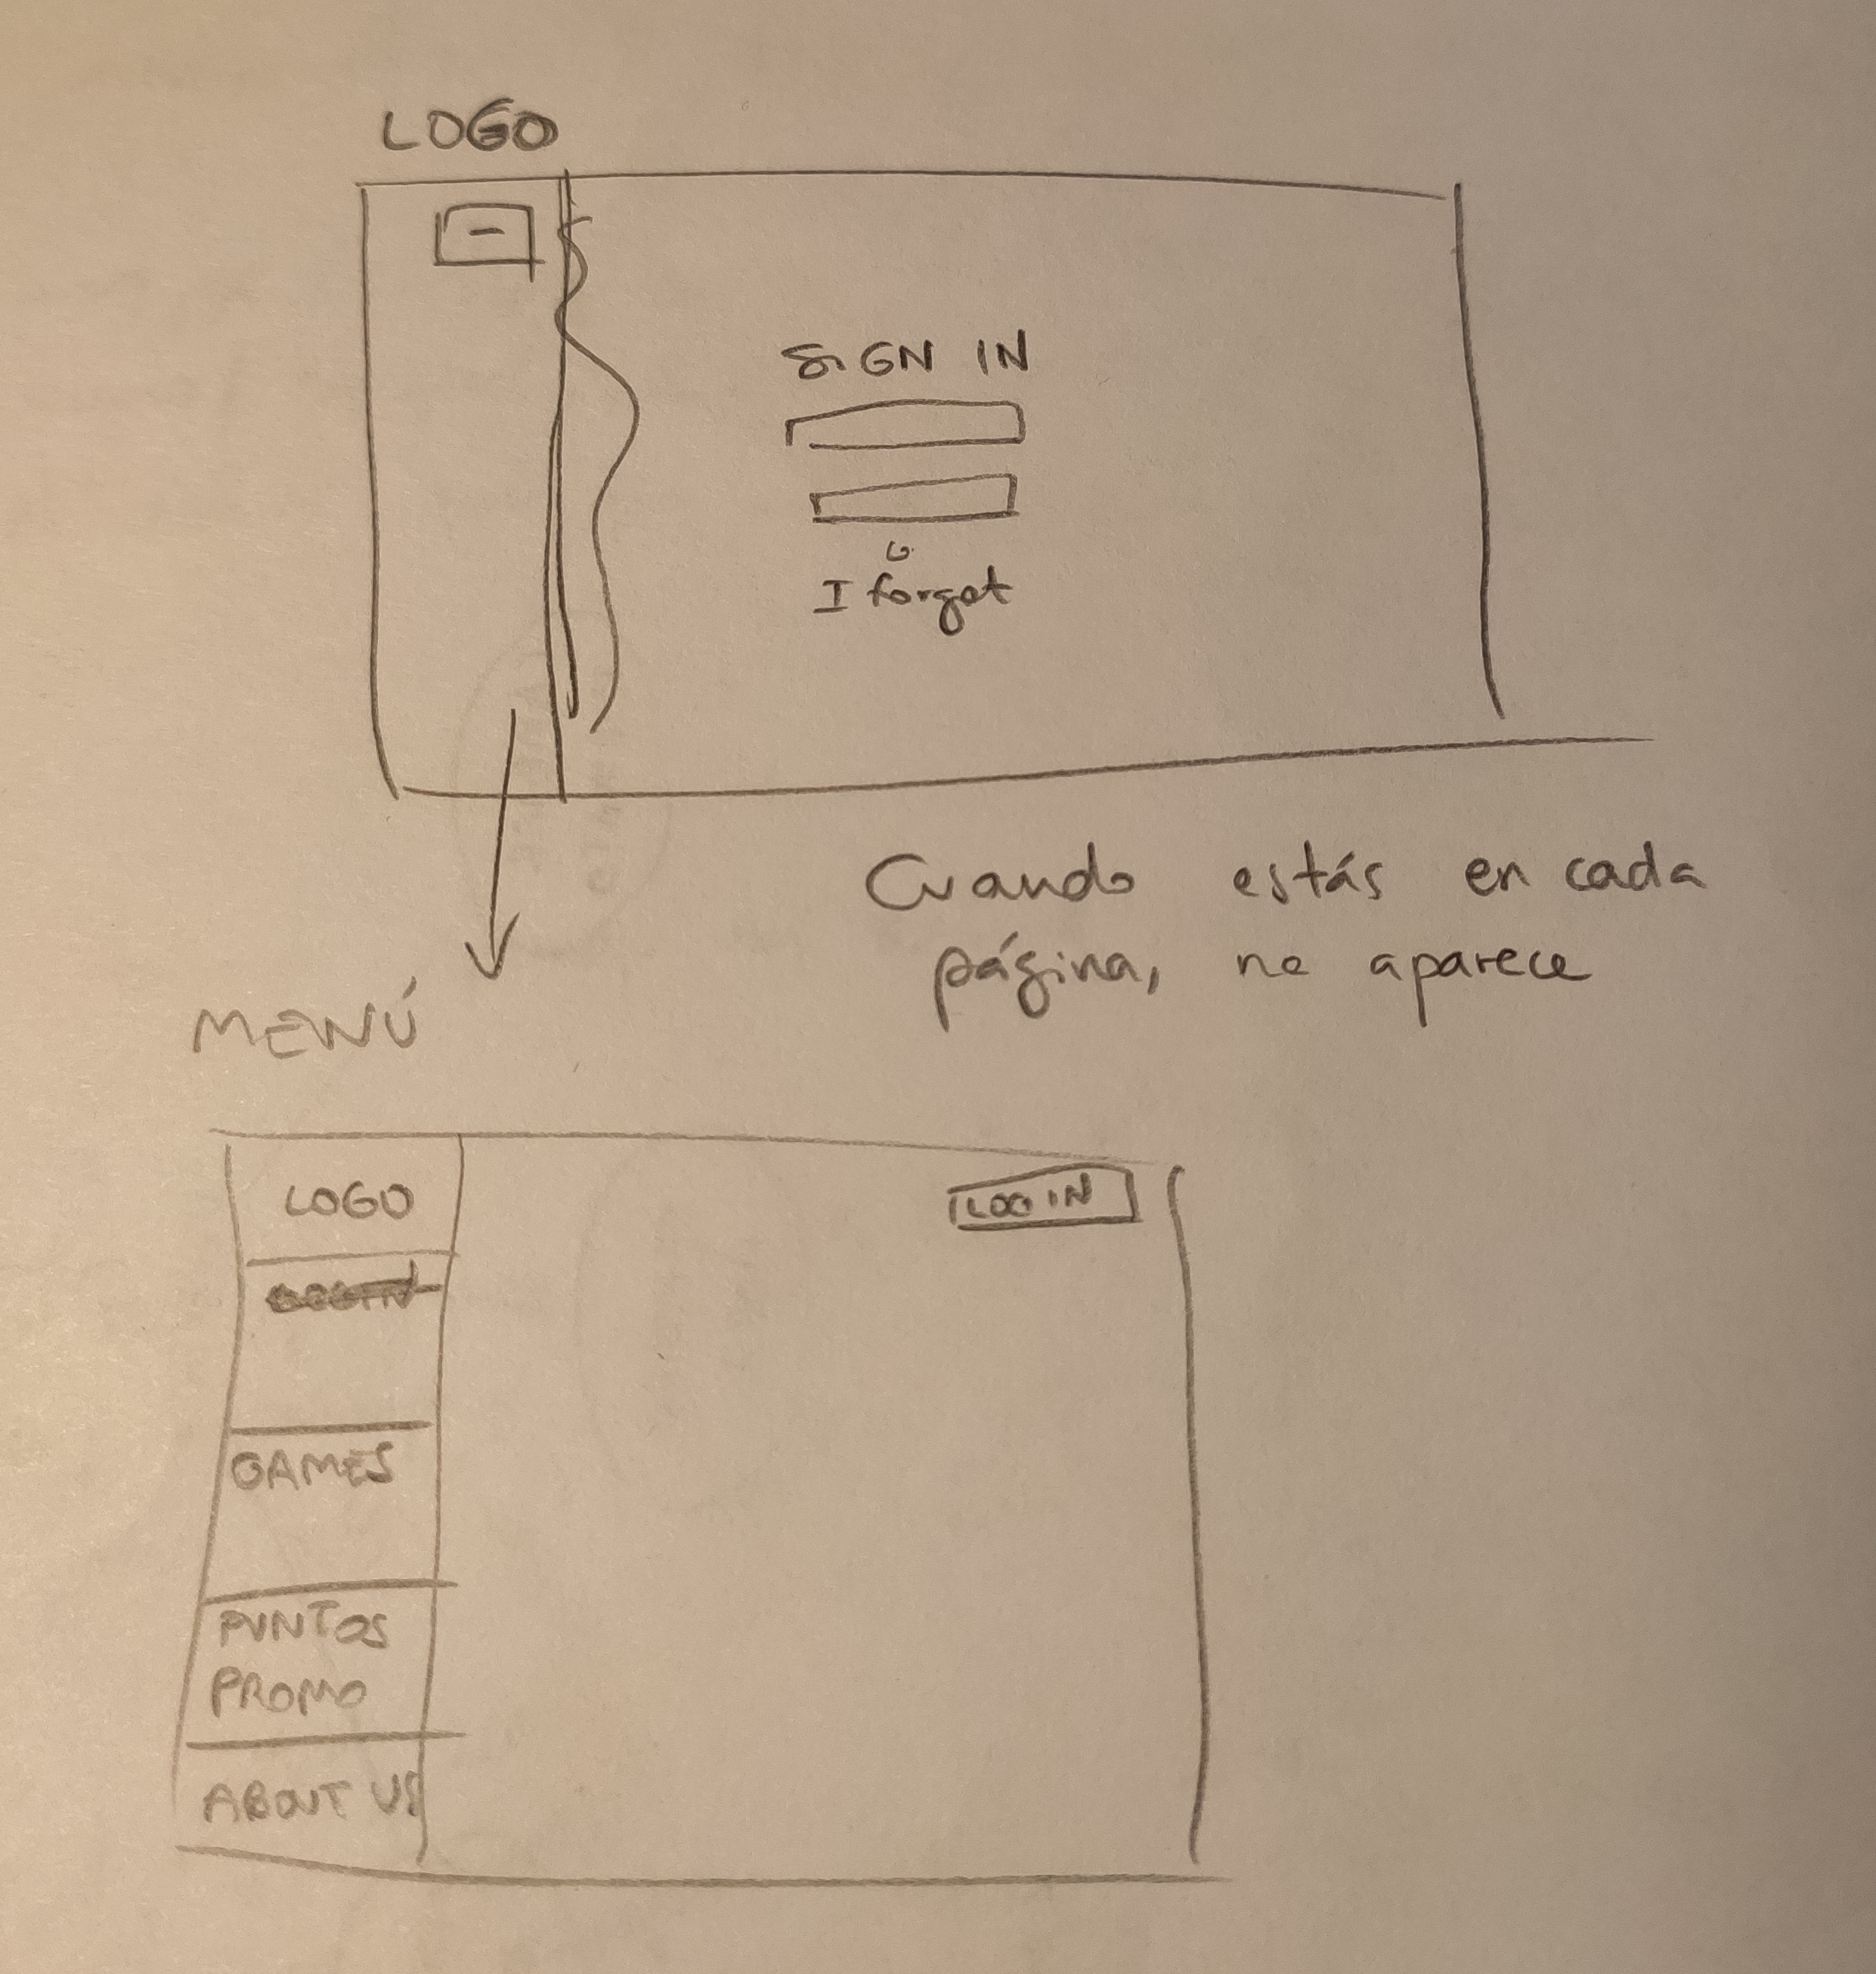 LOGO
SIGN IN
I forget
Cuando estás en cada
página, no aparece
MENÚ
LOGO
LOG IN
GAMES
PUNTOS
PROMO
ABOUT US